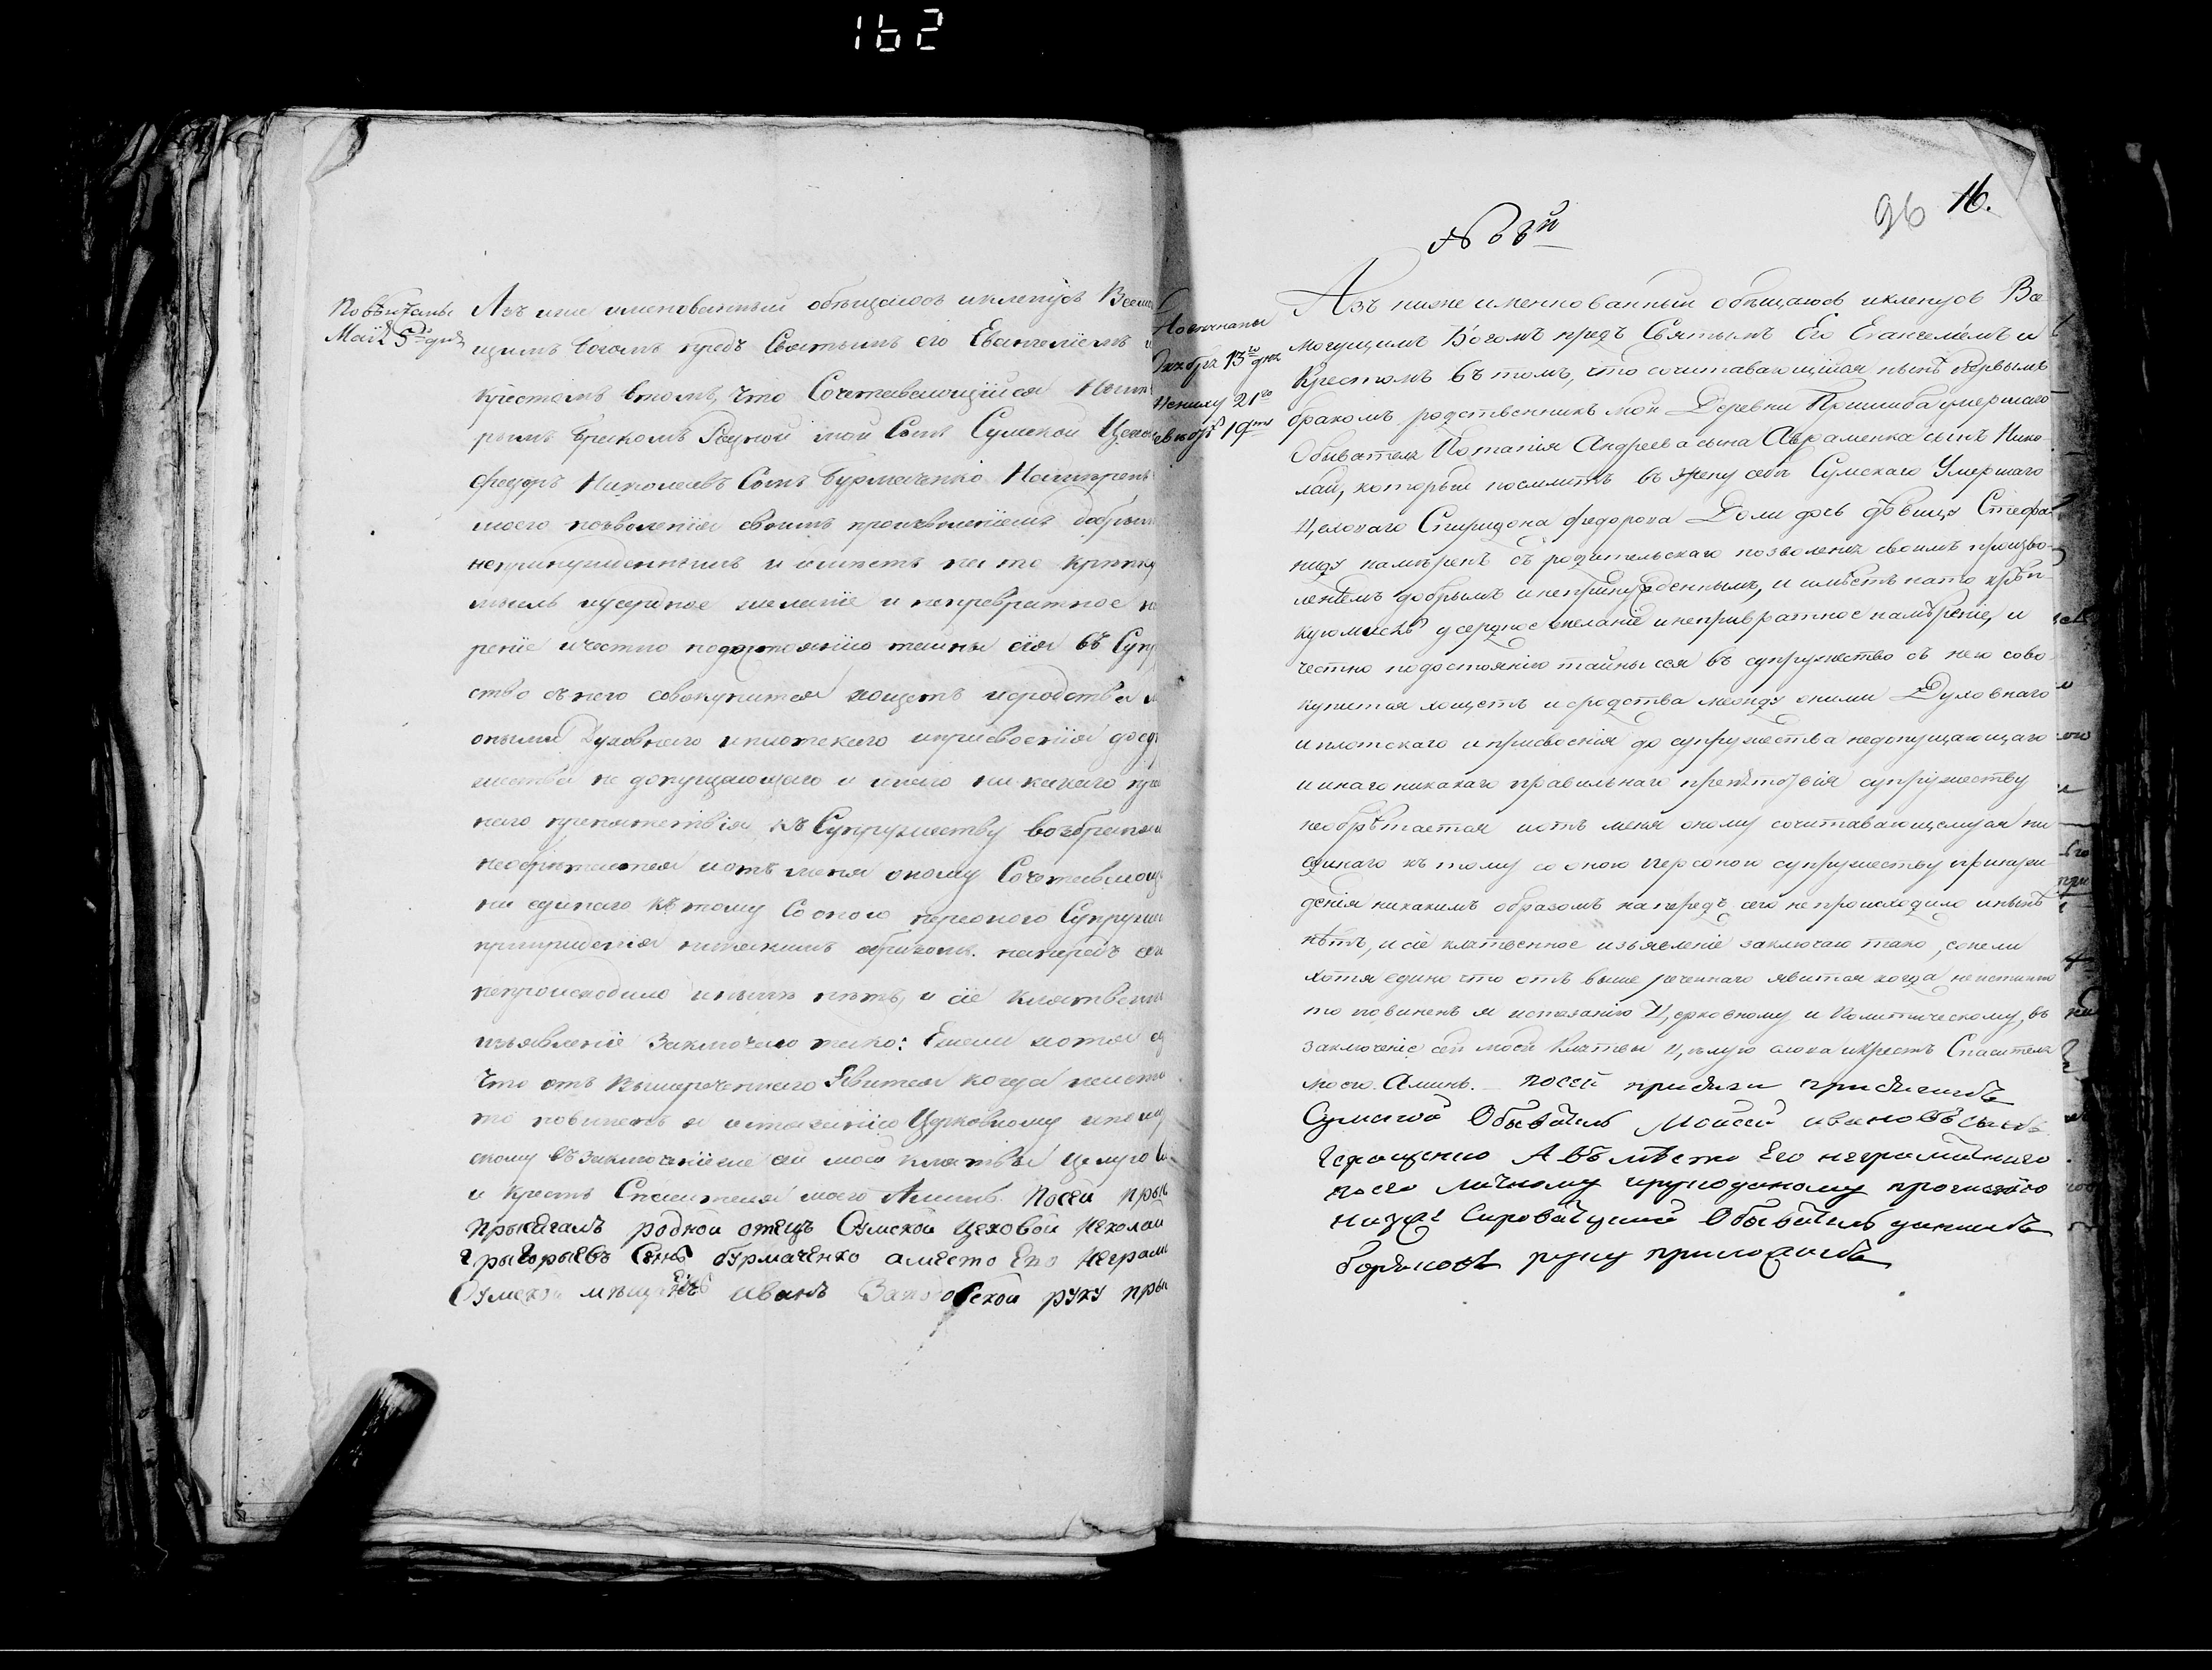 162
Повѣнчаны
Маія 5го дня
Азъ ниже именованный обѣщаюсь и кленусь Всемо
щимъ Богомъ предъ Святымъ его Евангеліемъ и
крестомъ втомъ, что Сочетавающійся Нын
рымъ бракомъ Родной мой Сынъ Сумской Цехо
федоръ Николаевъ Сынъ Бурмаченко Намѣренъ
моего позволенія своимъ произволеніемъ добрым
непринужденнымъ и имѣетъ на то крѣпку
мысль усердное желаніе и непревратное на
реніе и честно по достоянію тайны сія въ Супр
ство съ нею совокупится хощетъ и сродства м
оными Духовнаго и плотскаго и присвоенія досу
жества не допущающаго и инаго никакаго пра
наго препятствія къ Супружеству возбраня
необрѣтается и отъ меня оному Сочетавающ
ни единаго къ тому Со оною персоною Супруже
принужденія никакимъ образомъ напередъ се
непроисходило и нынѣ нѣтъ, и сіе клятвенно
изъявленіе Заключаю тако: Ежели хотя ед
что отъ вышереченнаго Явится когда неисти
то повиненъ я истязанію Церковному и поли
скому въ заключеніе сей моей клятвы целую С
и крестъ Спасителя моего Аминь. Посей прыс
прысягалъ родной отецъ Сумской цеховой Николай
Грыгорьевъ Сынъ бурмаченко амѣсто Его Неграм
Сумской мѣщанинъ иванъ руку прыл
96 16.
№ 68й
Повенчаны
Октября 13го дня
жениху 21го
невѣсте 19ть
Азъ ниже именнованный обѣщаюсь и кленусь Все
могущимъ Богомъ предъ Святымъ Его Евангеліемъ и
Крестомъ въ томъ, что сочитавающійся нынѣ первымъ
бракомъ родственникъ мой Деревни Пришиба умершаго
Обывателя Потапія Андреева сына Авраменка сынъ Нико-
лай, который поемлитъ въ жену себѣ Сумскаго Умершаго
Цеховаго Спиридона федорова дочь дѣвицу Стефа-
ниду намѣренъ съ родительскаго позволенія своимъ произво-
леніемъ добрымъ и непринужденнымъ, и имѣетъ на то крѣп-
кую мысль усердное желаніе и непривратное намѣреніе, и
честно подостоянію тайны сея въ супружество съ нею сово-
купится хощетъ и сродства между оними Духовнаго
и плотскаго и присвоенія до супружества недопущающаго
и инаго никакаго правильнаго препятствія супружеству
необрѣтается и отъ меня оному сочитавающемуся ни
единаго къ тому со оною персоною супружеству принуж-
денія никакимъ образомъ напередъ сего не происходило и нынѣ
нѣтъ, и сіе клятвенное изъявленіе заключаю тако, ежели
хотя едино что отъ выше реченнаго явится когда неистинно
то повиненъ я истязанію Церковному и Политическому, въ
заключеніе сей моей Клятвы целую слова и крестъ Спасителя
моего. Аминь. посей присяги присягалъ
Сумской Обыватель Моисей ивановъ сынъ
Геращенко А въмѣсто Его неграматнаго
поего личному ирукоданому прошенію
низше Сироватской Обыватель данилъ
боряковъ руку приложилъ